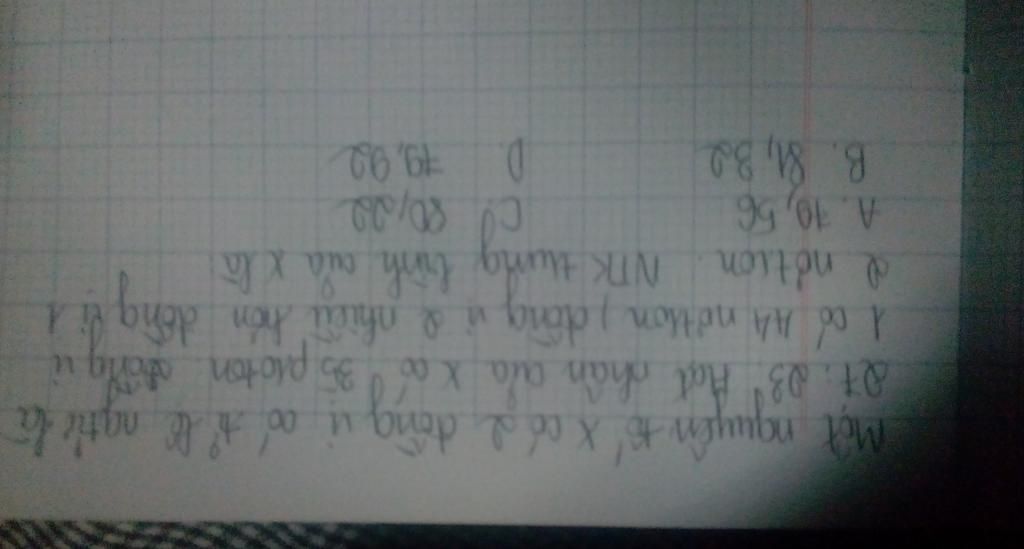 Một nguyên tố X có 2 đồng vị có tỉ lệ ngtử là
27:23 Hạt nhân của X có 35 proton đồng vị
1 có 44 nơtron, đồng vị 2 nhiều hơn đồng vị 1
2 nơtron. NTK trung bình của X là
A. 79,56 C. 80,22
B. 81,32 D. 79,92